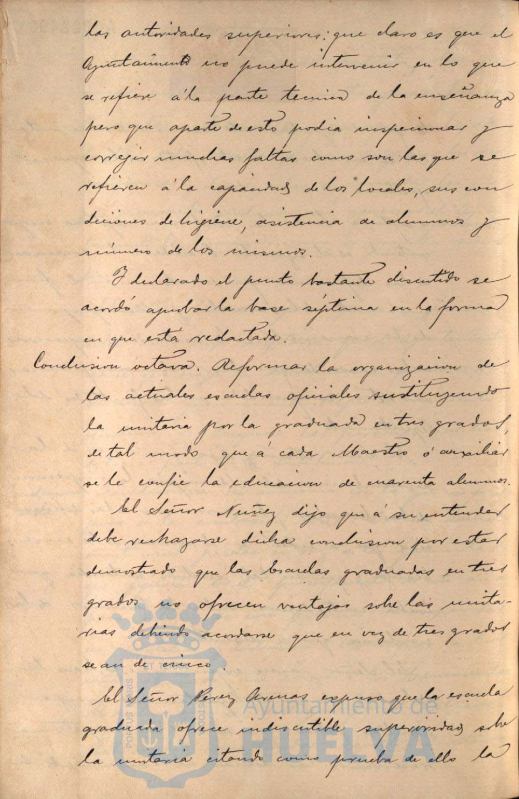 las autoridades superiores: que claro es que el
Ayuntamiento no puede intervenir en lo que
se refiere á la parte tecnica de la enseñanza
pero que aparte de esto podia inspecionar y
correjir muchas faltas como son las que se
refieren á la capacidad de los locales, sus con
diciones de higiene, asistencia de alumnos y
número de los mismos.
Y declarado el punto bastante discutido se
acordó aprobar la base séptima en la forma
en que está redactada.
Conclusion octava. Reformar la organizacion de
las actuales escuelas oficiales sustituyendo
la unitaria por la graduada en tres grados,
de tal modo que á cada Maestro ó auxiliar
se le confie la educacion de cuarenta alumnos.
El Señor Nuñez dijo que á su entender
debe rechazarse dicha conclusion por estar
demostrado que las Escuelas graduadas en tres
grados no ofrecen ventajas sobre las unita-
rias debiendo acordarse que en vez de tres grados
sean de cinco.
El Señor Perez Arenas expuso que la escuela
graduada ofrece indiscutible superioridad sobre
la unitaria citando como prueba de ello la
Ayuntamiento de
HUELVA